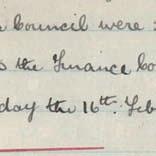 Council were
the Finance Co
day the 16th. Feb